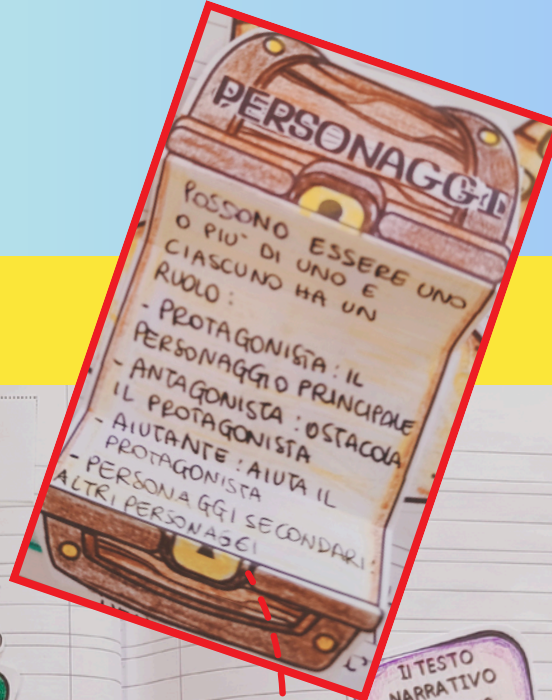 PERSONAGGI
POSSONO ESSERE UNO
O PIU' DI UNO E
CIASCUNO HA UN
RUOLO :
- PROTAGONISTA : IL
PERSONAGGIO PRINCIPALE
- ANTAGONISTA : OSTACOLA
IL PROTAGONISTA
- AIUTANTE : AIUTA IL
PROTAGONISTA
- PERSONAGGI SECONDARI:
ALTRI PERSONAGGI
Il TESTO
NARRATIVO